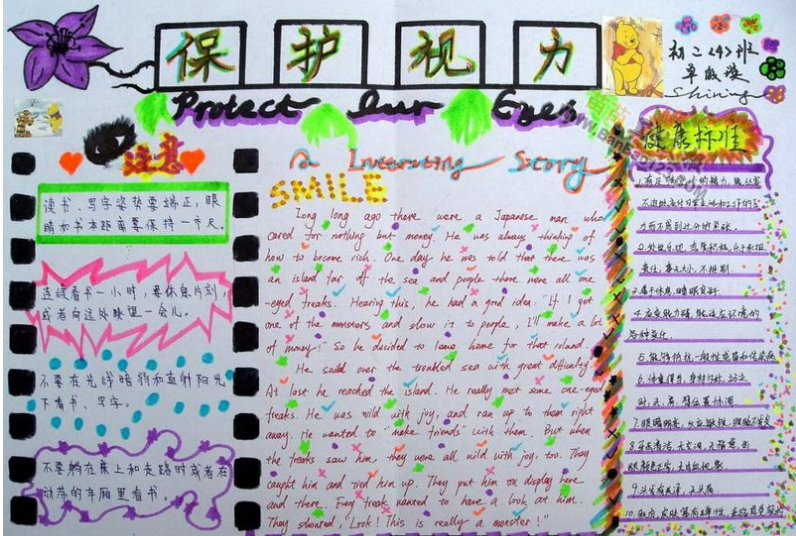 保护视力
初二<4>班
Shining
Protect Our Eyes
注意
读书、写字姿势要端正,眼
睛和书本距离要保持一市尺。
连续看书一小时,要休息片刻,
或者向远处眺望一会儿。
不要在光线暗弱和直射阳光
下看书、写字。
不要躺在床上和走路时或者在
动荡的车厢里看书。
a Interesting Story
SMILE
Long long ago there were a Japanese man who
cared for nothing but money. He was always thinking of
how to become rich. One day he was told that there was
an island far off the sea and people there were all one
-eyed freaks. Hearing this, he had a good idea. "If I got
one of the monsters and show it to people, I'll make a lot
of money!" So he decided to leave home for that island.
He saild over the troubled sea with great difficulty.
At last he reached the island. He really met some one-eyed
freaks. He was mild with joy, and ran up to them right
away. He wanted to "make friends" with them. But when
the freaks saw him, they were all mild with joy, too. They
caught him and tied him up. They put him on display here
and there. Every freak wanted to have a look at him.
They shouted, "Look! This is really a monster!"
健康标准
不过分紧张
责任,事无大小,不挑剔
3.善于休息,睡眠良好
4.应变能力强,能适应环境的
各种变化。
5.能够抵抗一般性感冒和传染病
6.体重得当,身材匀称,站立
时,头、肩、臂位置协调
7.眼睛明亮,反应敏锐,眼睑不发炎
8.牙齿清洁,无空洞,无痛感,齿
龈颜色正常,无出血现象
9.头发有光泽,无头屑